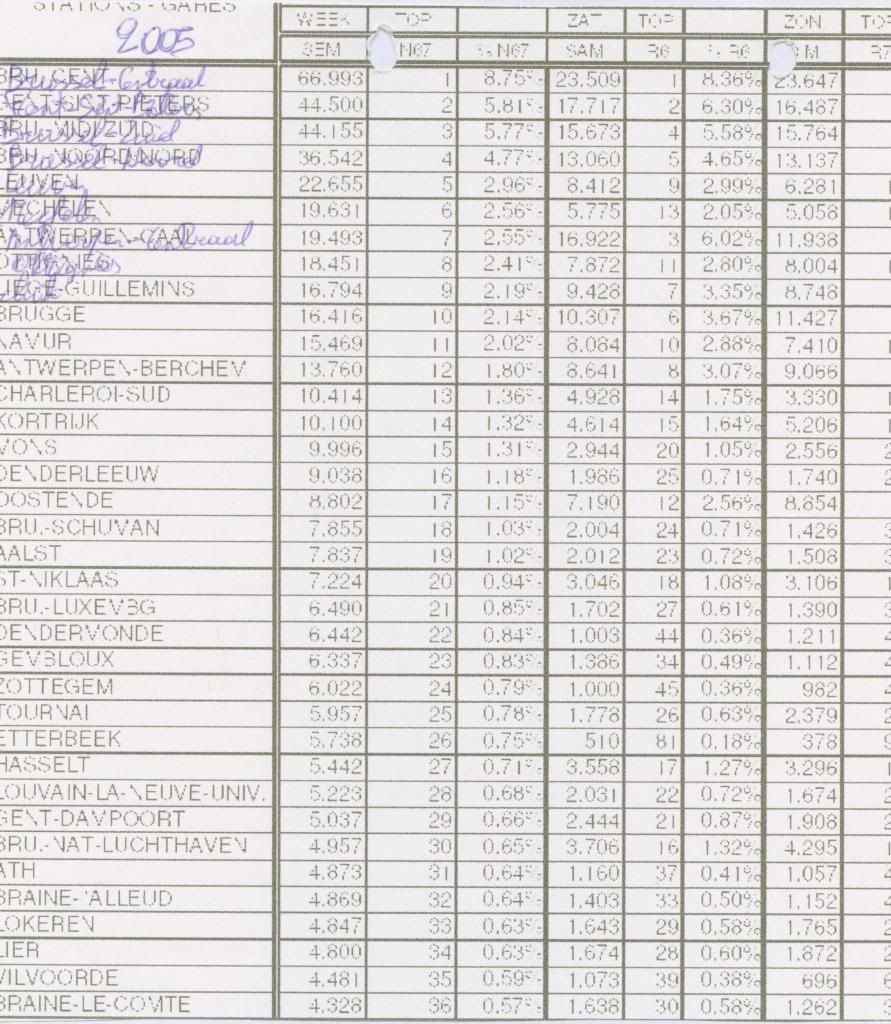 STATIONS - GARES WEEK TOP ZAT TOP ZON TOP
2005 SEM N67 % N67 SAM R6 % R6 R7
BRU.-CENT. Brussel-Centraal 66.993 1 8.75% 23.509 1 8.36% 23.647
GENT-ST-PIETERS 44.500 2 5.81% 17.717 2 6.30% 16.487
BRU.-MIDI/ZUID 44.155 3 5.77% 15.673 4 5.58% 15.764
BRU.-NOORD/NORD 36.542 4 4.77% 13.060 5 4.65% 13.137
LEUVEN 22.655 5 2.96% 8.412 9 2.99% 6.281
MECHELEN 19.631 6 2.56% 5.775 13 2.05% 5.058
ANTWERPEN-CAAL Antwerpen-Centraal 19.493 7 2.55% 16.922 3 6.02% 11.938
OTTIGNIES 18.451 8 2.41% 7.872 11 2.80% 8.004
LIEGE-GUILLEMINS 16.794 9 2.19% 9.428 7 3.35% 8.748
BRUGGE 16.416 10 2.14% 10.307 6 3.67% 11.427
NAMUR 15.469 11 2.02% 8.084 10 2.88% 7.410
ANTWERPEN-BERCHEM 13.760 12 1.80% 8.641 8 3.07% 9.066
CHARLEROI-SUD 10.414 13 1.36% 4.928 14 1.75% 3.330
KORTRIJK 10.100 14 1.32% 4.614 15 1.64% 5.206
MONS 9.996 15 1.31% 2.944 20 1.05% 2.556
DENDERLEEUW 9.038 16 1.18% 1.986 25 0.71% 1.740
OOSTENDE 8.802 17 1.15% 7.190 12 2.56% 8.854
BRU.-SCHUMAN 7.855 18 1.03% 2.004 24 0.71% 1.426
AALST 7.837 19 1.02% 2.012 23 0.72% 1.508
ST-NIKLAAS 7.224 20 0.94% 3.046 18 1.08% 3.106
BRU.-LUXEMBG 6.490 21 0.85% 1.702 27 0.61% 1.390
DENDERMONDE 6.442 22 0.84% 1.003 44 0.36% 1.211
GEMBLOUX 6.337 23 0.83% 1.386 34 0.49% 1.112
ZOTTEGEM 6.022 24 0.79% 1.000 45 0.36% 982
TOURNAI 5.957 25 0.78% 1.778 26 0.63% 2.379
ETTERBEEK 5.738 26 0.75% 510 81 0.18% 378
HASSELT 5.442 27 0.71% 3.558 17 1.27% 3.296
LOUVAIN-LA-NEUVE-UNIV. 5.223 28 0.68% 2.031 22 0.72% 1.674
GENT-DAMPOORT 5.037 29 0.66% 2.444 21 0.87% 1.908
BRU.-NAT-LUCHTHAVEN 4.957 30 0.65% 3.706 16 1.32% 4.295
ATH 4.873 31 0.64% 1.160 37 0.41% 1.057
BRAINE-'ALLEUD 4.869 32 0.64% 1.403 33 0.50% 1.152
LOKEREN 4.847 33 0.63% 1.643 29 0.58% 1.765
LIER 4.800 34 0.63% 1.674 28 0.60% 1.872
VILVOORDE 4.481 35 0.59% 1.073 39 0.38% 696
BRAINE-LE-COMTE 4.328 36 0.57% 1.638 30 0.58% 1.262